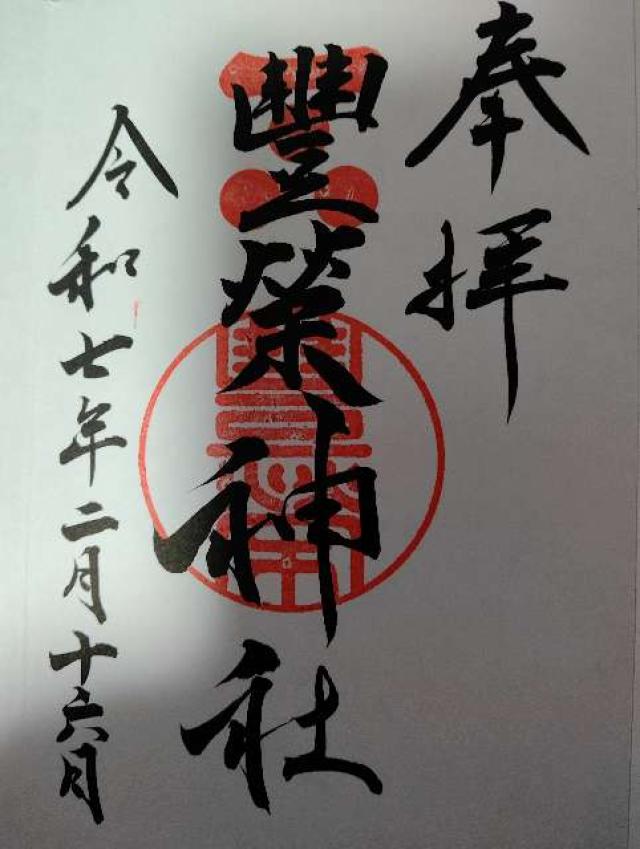 奉拝
豐榮神社
令和七年二月十六日